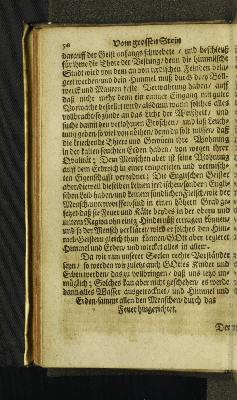 50 Vom grossen Stein
darauff der Geist anfangs schwebete / und beschleuß
für ihme die Thore der Vestung / denn die himmlische
Stadt wird von dem an von irrdischen Feinden
gert werden und dein Himmel muß durch drey Boll-
werck und Mauren feste Verwahrung haben / auff
daß nicht mehr denn ein einiger Eingang mit guter
Vorwache bestellet wird / als dann wann solches alles
vollbracht so zünde an das Licht der Weisheit / und
suche damit den verlohrnen Groschen / und laß
ung geben so viel von nöhten / denn du solt wissen / daß
die kriechende Thiere und Gewürm ihre Wohnung
in der kalten feuchten Erden haben / von wegen ihrer
Qualität; Dem Menschen aber ist seine Wohnung
auff dem Erdreich in einer temperirten und vermisch-
ten Eigenschafft verordnet; Die Englischen Geister
aber / dieweil dieselben keinen irrdischen / sondern Engli-
schen Leib haben und keinem sündlichen Fleisch wie der
Mensch unterworffen / sind in einen höhern Grad ge-
setzet / daß sie Feuer und Kälte beydes in der obern und
untern Region ohn einig Hindernüß ertragen können /
und so der Mensch verkläret / wird er solches den Him-
mels Geistern gleich thun können / GOtt aber regieret
Himmel und Erden / und würcket alles in allem.
Da wir nun unserer Seelen rechte Vorständer
seyn / so werden wir zuletzt auch GOttes Kinder und
Erben werden / das zu vollbringen / daß uns jetzo un-
müglich; Solches kan aber nicht geschehen / es werde
dann alles Wasser ausgetrocknet / und Himmel und
Erden / sammt allen den Menschen / durch das
Feuer hingerichtet.
Der